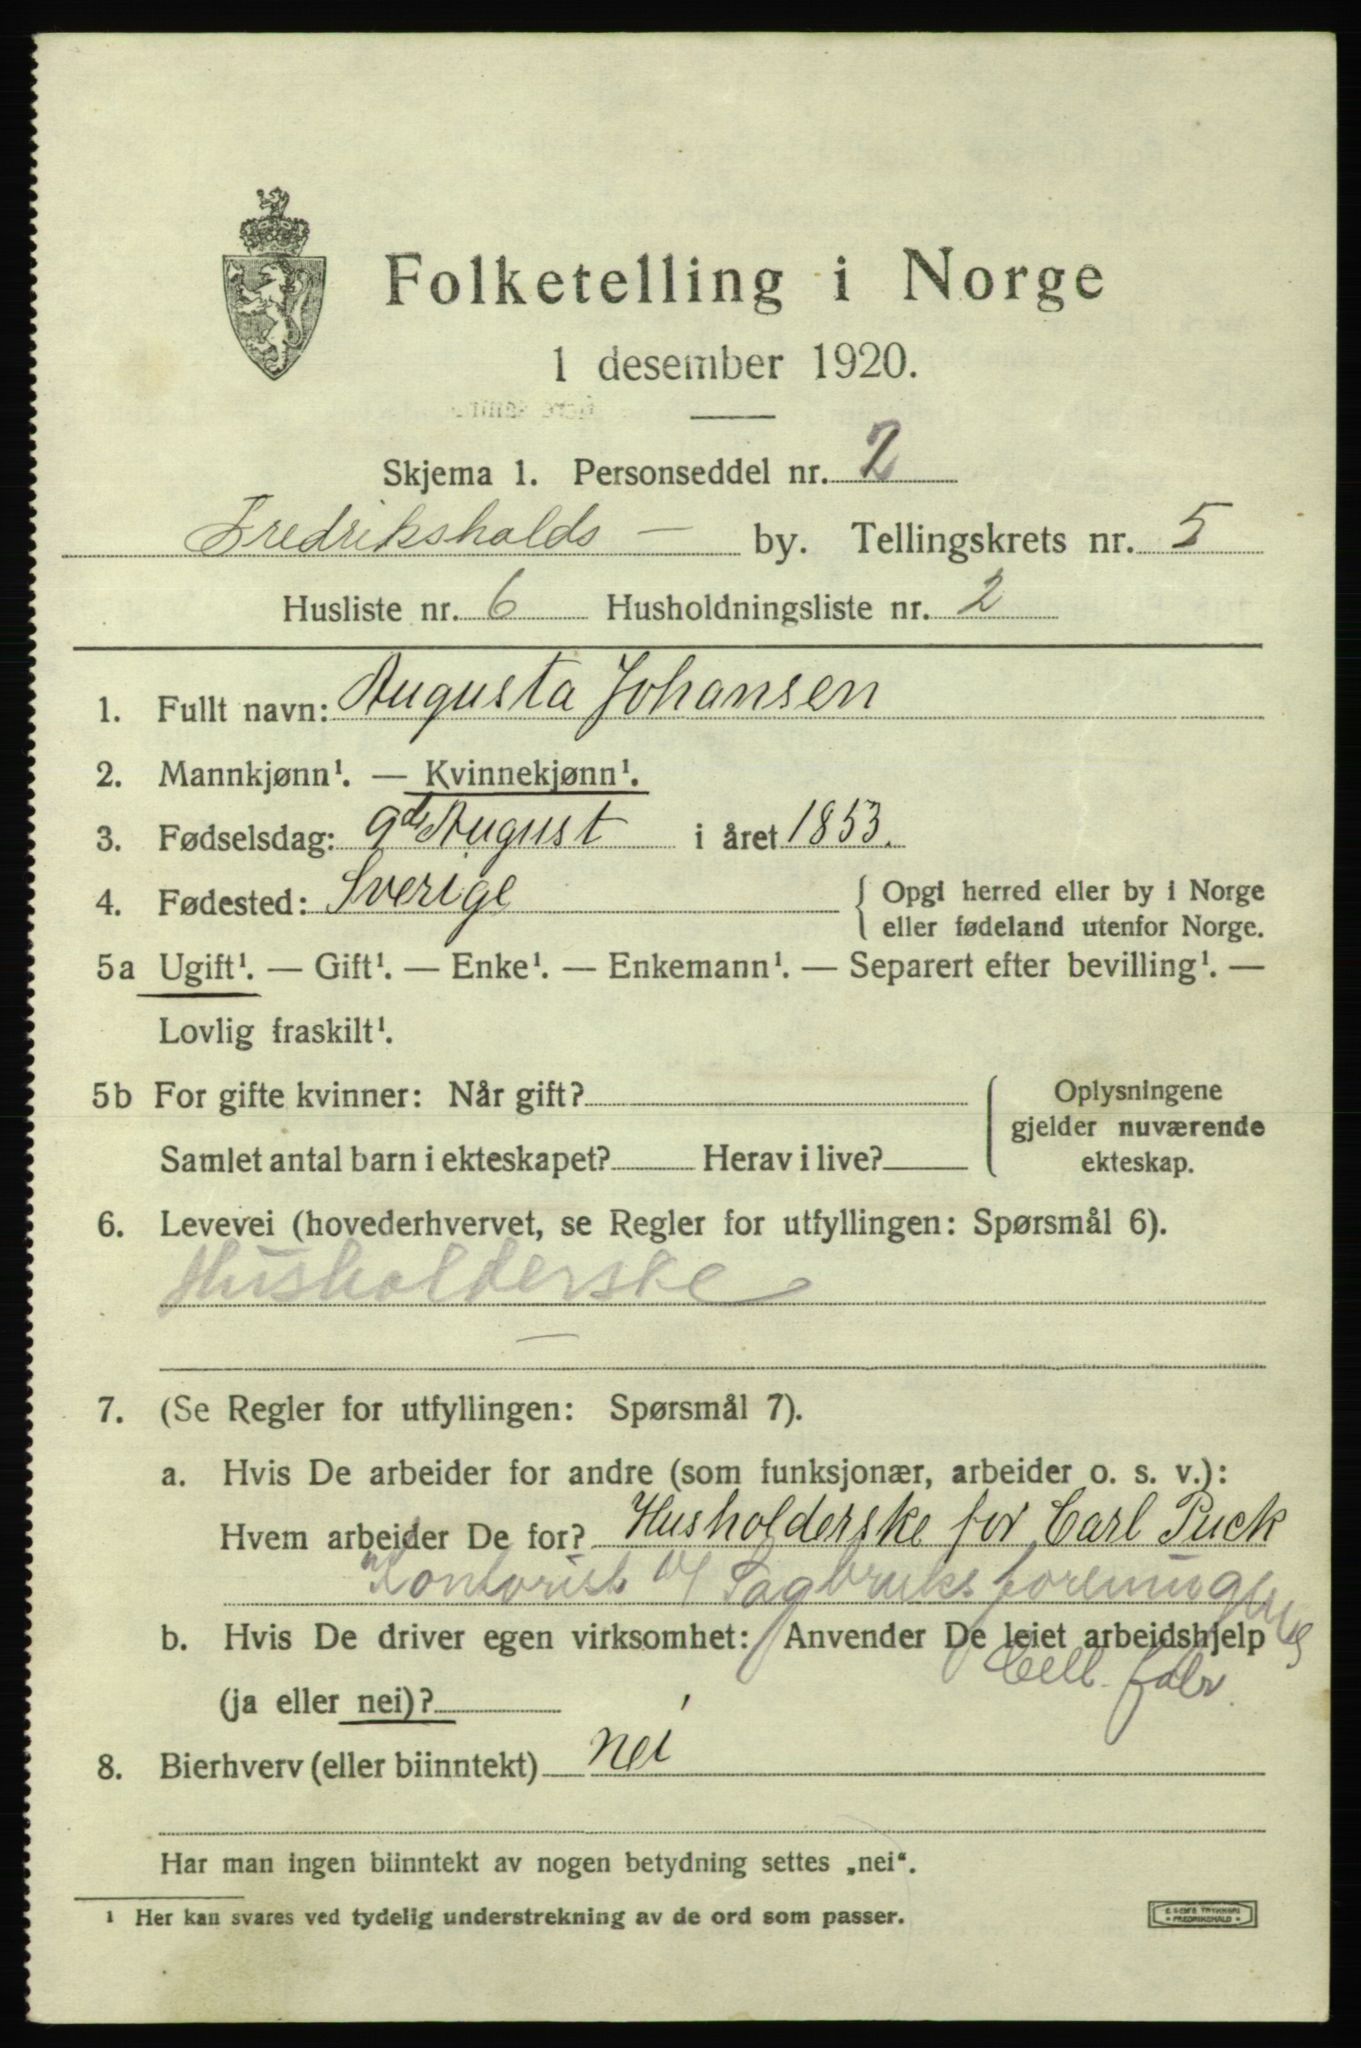 Folketelling i Norge
1 desember 1920.
Skjema 1. Personseddel nr. 2
Fredriksholds — by. Tellingskrets nr. 5
Husliste nr. 6 Husholdningsliste nr. 2
1. Fullt navn: Augusta Johansen
2. Mannkjønn¹. — Kvinnekjønn¹.
3. Fødselsdag: 9de August i året 1853.
4. Fødested: Sverige { Opgi herred eller by i Norge
eller fødeland utenfor Norge.
5a Ugift¹. — Gift¹. — Enke¹. — Enkemann¹. — Separert efter bevilling¹. —
Lovlig fraskilt¹.
5b For gifte kvinner: Når gift?
Samlet antal barn i ekteskapet? Herav i live?
Oplysningene
gjelder nuværende
ekteskap.
6. Levevei (hovederhvervet, se Regler for utfyllingen: Spørsmål 6).
Husholderske
—
7. (Se Regler for utfyllingen: Spørsmål 7).
a. Hvis De arbeider for andre (som funksjonær, arbeider o. s. v.):
Hvem arbeider De for? Husholderske for Carl Puck
Kontorist v/ Sagbruksforeningens
b. Hvis De driver egen virksomhet: Anvender De leiet arbeidshjelp
Cell. fabr.
(ja eller nei)?
8. Bierhverv (eller biinntekt) nei
Har man ingen biinntekt av nogen betydning settes „nei“.
¹ Her kan svares ved tydelig understrekning av de ord som passer.
TRYKKERI
FREDRIKSHALD